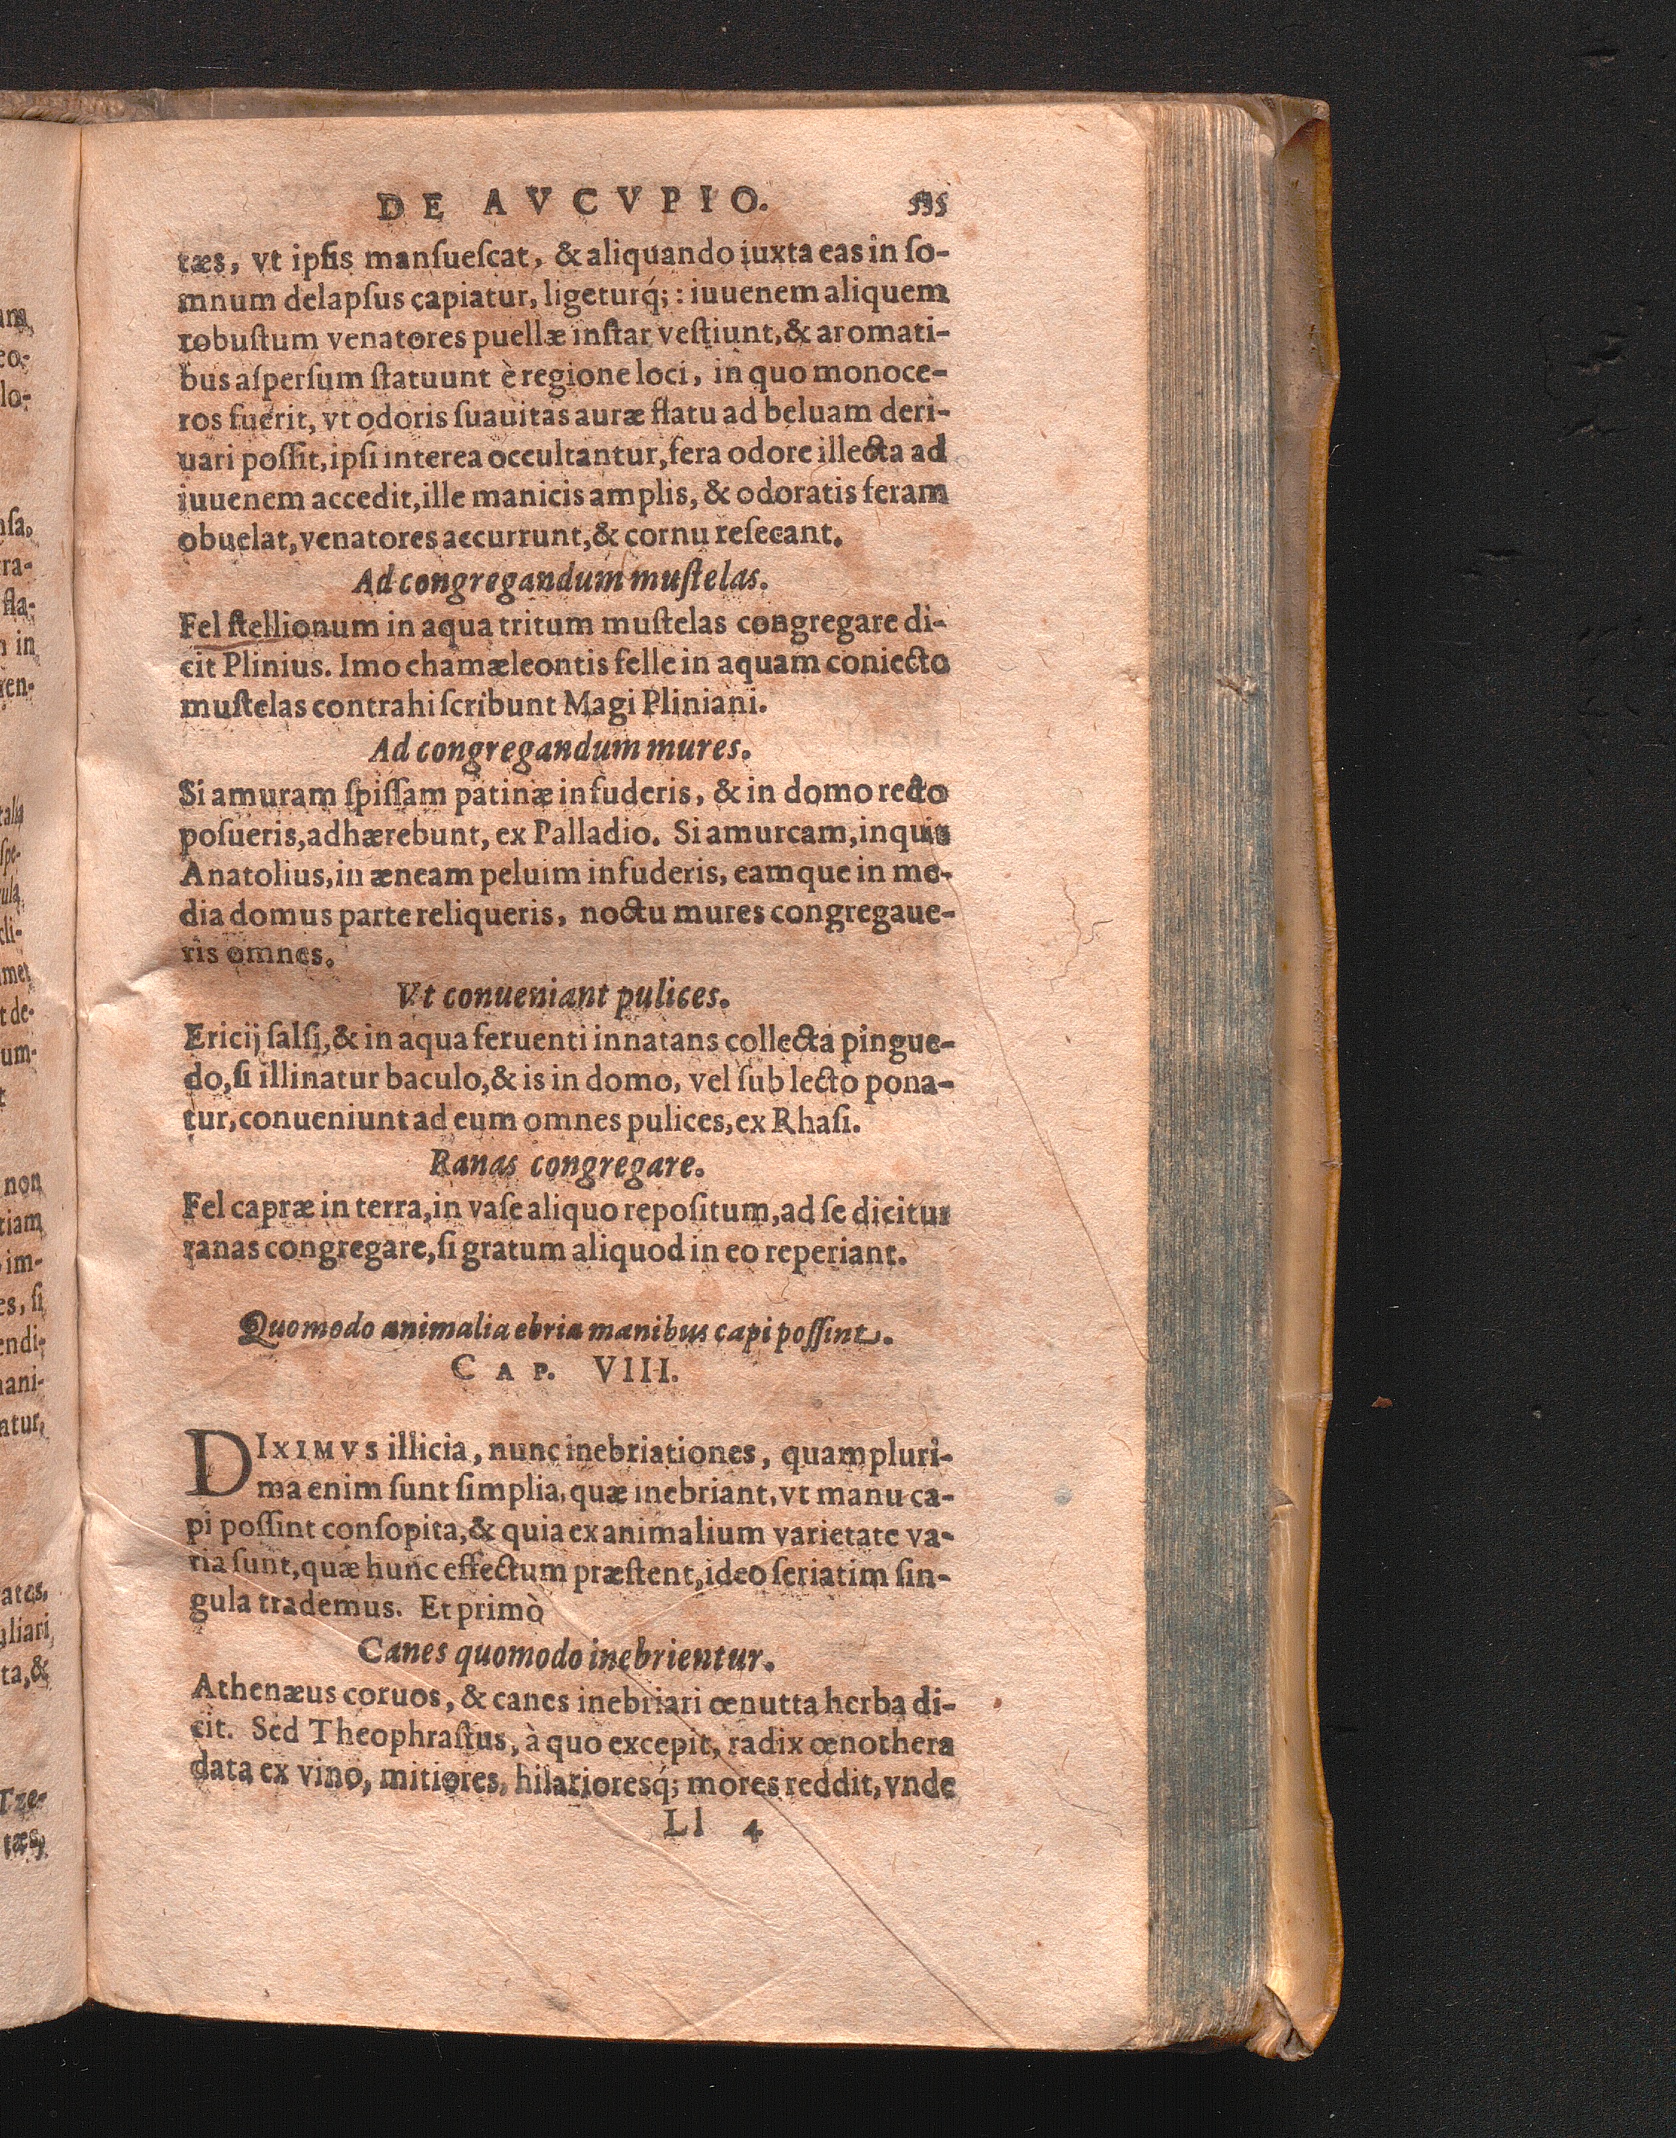 DE AVCVPIO.
tæs, vt ipſis manſueſcat, & aliquando iuxta eas in ſo-
mnum delapſus capiatur, ligeturq́;: iuuenem aliquem
robuſtum venatores puellæ inſtar veſtiunt, & aromati-
bus aſperſum ſtatuunt è regione loci, in quo monoce-
ros fuerit, vt odoris ſuauitas auræ flatu ad beluam deri-
uari poſſit, ipſi interea occultantur, fera odore illecta ad
iuuenem accedit, ille manicis amplis, & odoratis feram
obuelat, venatores accurrunt, & cornu reſecant.
Ad congregandum muſtelas.
Fel ſtellionum in aqua tritum muſtelas congregare di-
cit Plinius. Imo chamæleontis felle in aquam coniecto
muſtelas contrahi ſcribunt Magi Pliniani.
Ad congregandum mures.
Si amuram ſpiſſam patinæ infuderis, & in domo recto
poſueris, adhærebunt, ex Palladio. Si amurcam, inquit
Anatolius, in æneam peluim infuderis, eamque in me-
dia domus parte reliqueris, noctu mures congregaue-
ris omnes.
Vt conueniant pulices.
Ericij ſalſi, & in aqua feruenti innatans collecta pingue-
do, ſi illinatur baculo, & is in domo, vel ſub lecto pona-
tur, conueniunt ad eum omnes pulices, ex Rhaſi.
Ranas congregare.
Fel capræ in terra, in vaſe aliquo repoſitum, ad ſe dicitur
ranas congregare, ſi gratum aliquod in eo reperiant.
Quomodo animalia ebria manibus capi poſſint.
CAP. VIII.
DIXIMVS illicia, nunc inebriationes, quampluri-
ma enim ſunt ſimplia, quæ inebriant, vt manu ca-
pi poſſint conſopita, & quia ex animalium varietate va-
ria ſunt, quæ hunc effectum præſtent, ideo ſeriatim ſin-
gula trademus. Et primò
Canes quomodo inebrientur.
Athenæus coruos, & canes inebriari œnutta herba di-
cit. Sed Theophraſtus, à quo excepit, radix œnothera
data ex vino, mitiores, hilarioresq́; mores reddit, vnde
Ll 4